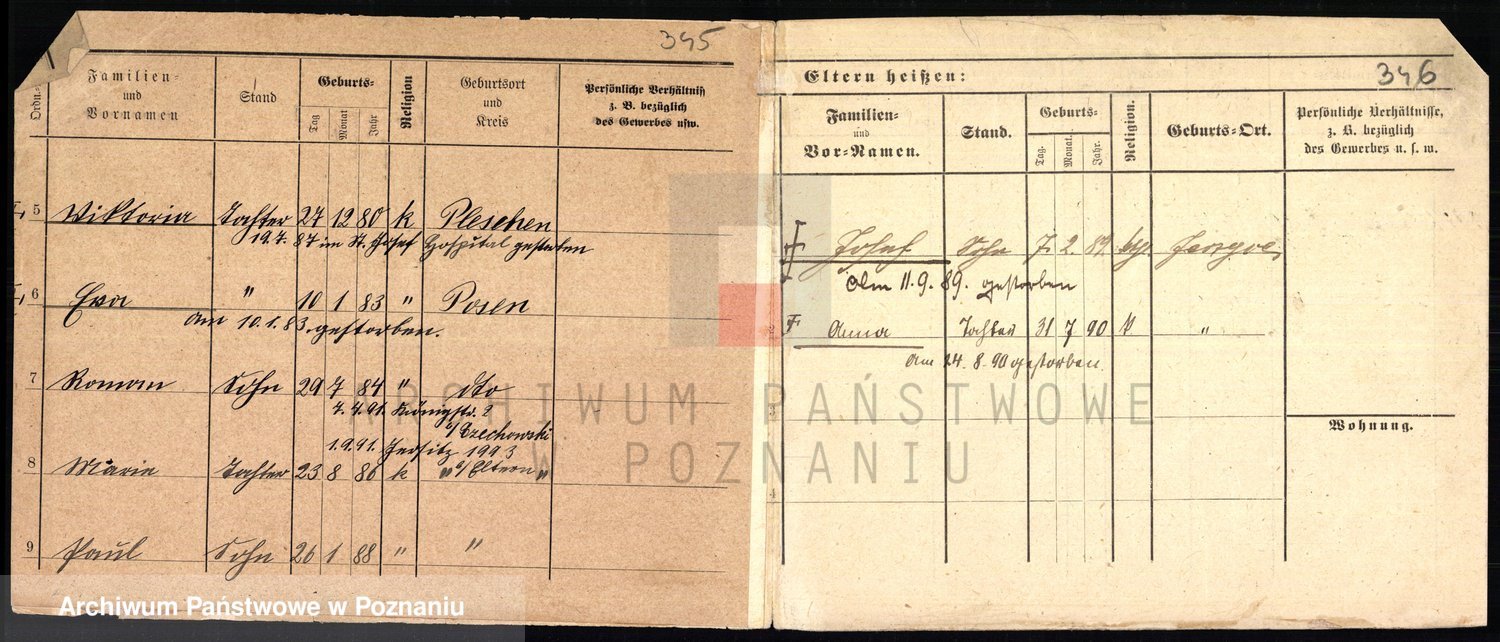 345
Ordn.
Familien-
und
Vornamen
Stand
Geburts-
Tag
Monat
Jahr
Religion
Geburtsort
und
Kreis
Persönliche Verhältniss
z. B. bezüglich
des Gewerbes usw.
5 Viktoria Tochter 27 12 80 k Pleschen
19.7. 87 im St. Josef Hospital gestorben
6 Eva " 10 1 83 " Posen
am 10.1.83. gestorben.
7 Roman Sohn 29 7 84 " dto
7.4.91. Königstr. 2
b/Czechowski
1.9.91. Jersitz 1993
8 Marie Tochter 23 8 86 k " b/Eltern "
9 Paul Sohn 26 1 88 " "
346
Eltern heißen:
Familien-
und
Vor-Namen.
Stand.
Geburts-
Tag.
Monat.
Jahr.
Religion.
Geburts-Ort.
Persönliche Verhältnisse,
z. B. bezüglich
des Gewerbes u. s. w.
Josef Sohn 7 2 89
Am 11.9.89. gestorben
2 Anna Tochter 31 7 90 k "
Am 24.8.90 gestorben.
3
Wohnung.
4
ARCHIWUM PAŃSTWOWE
W POZNANIU
Archiwum Państwowe w Poznaniu